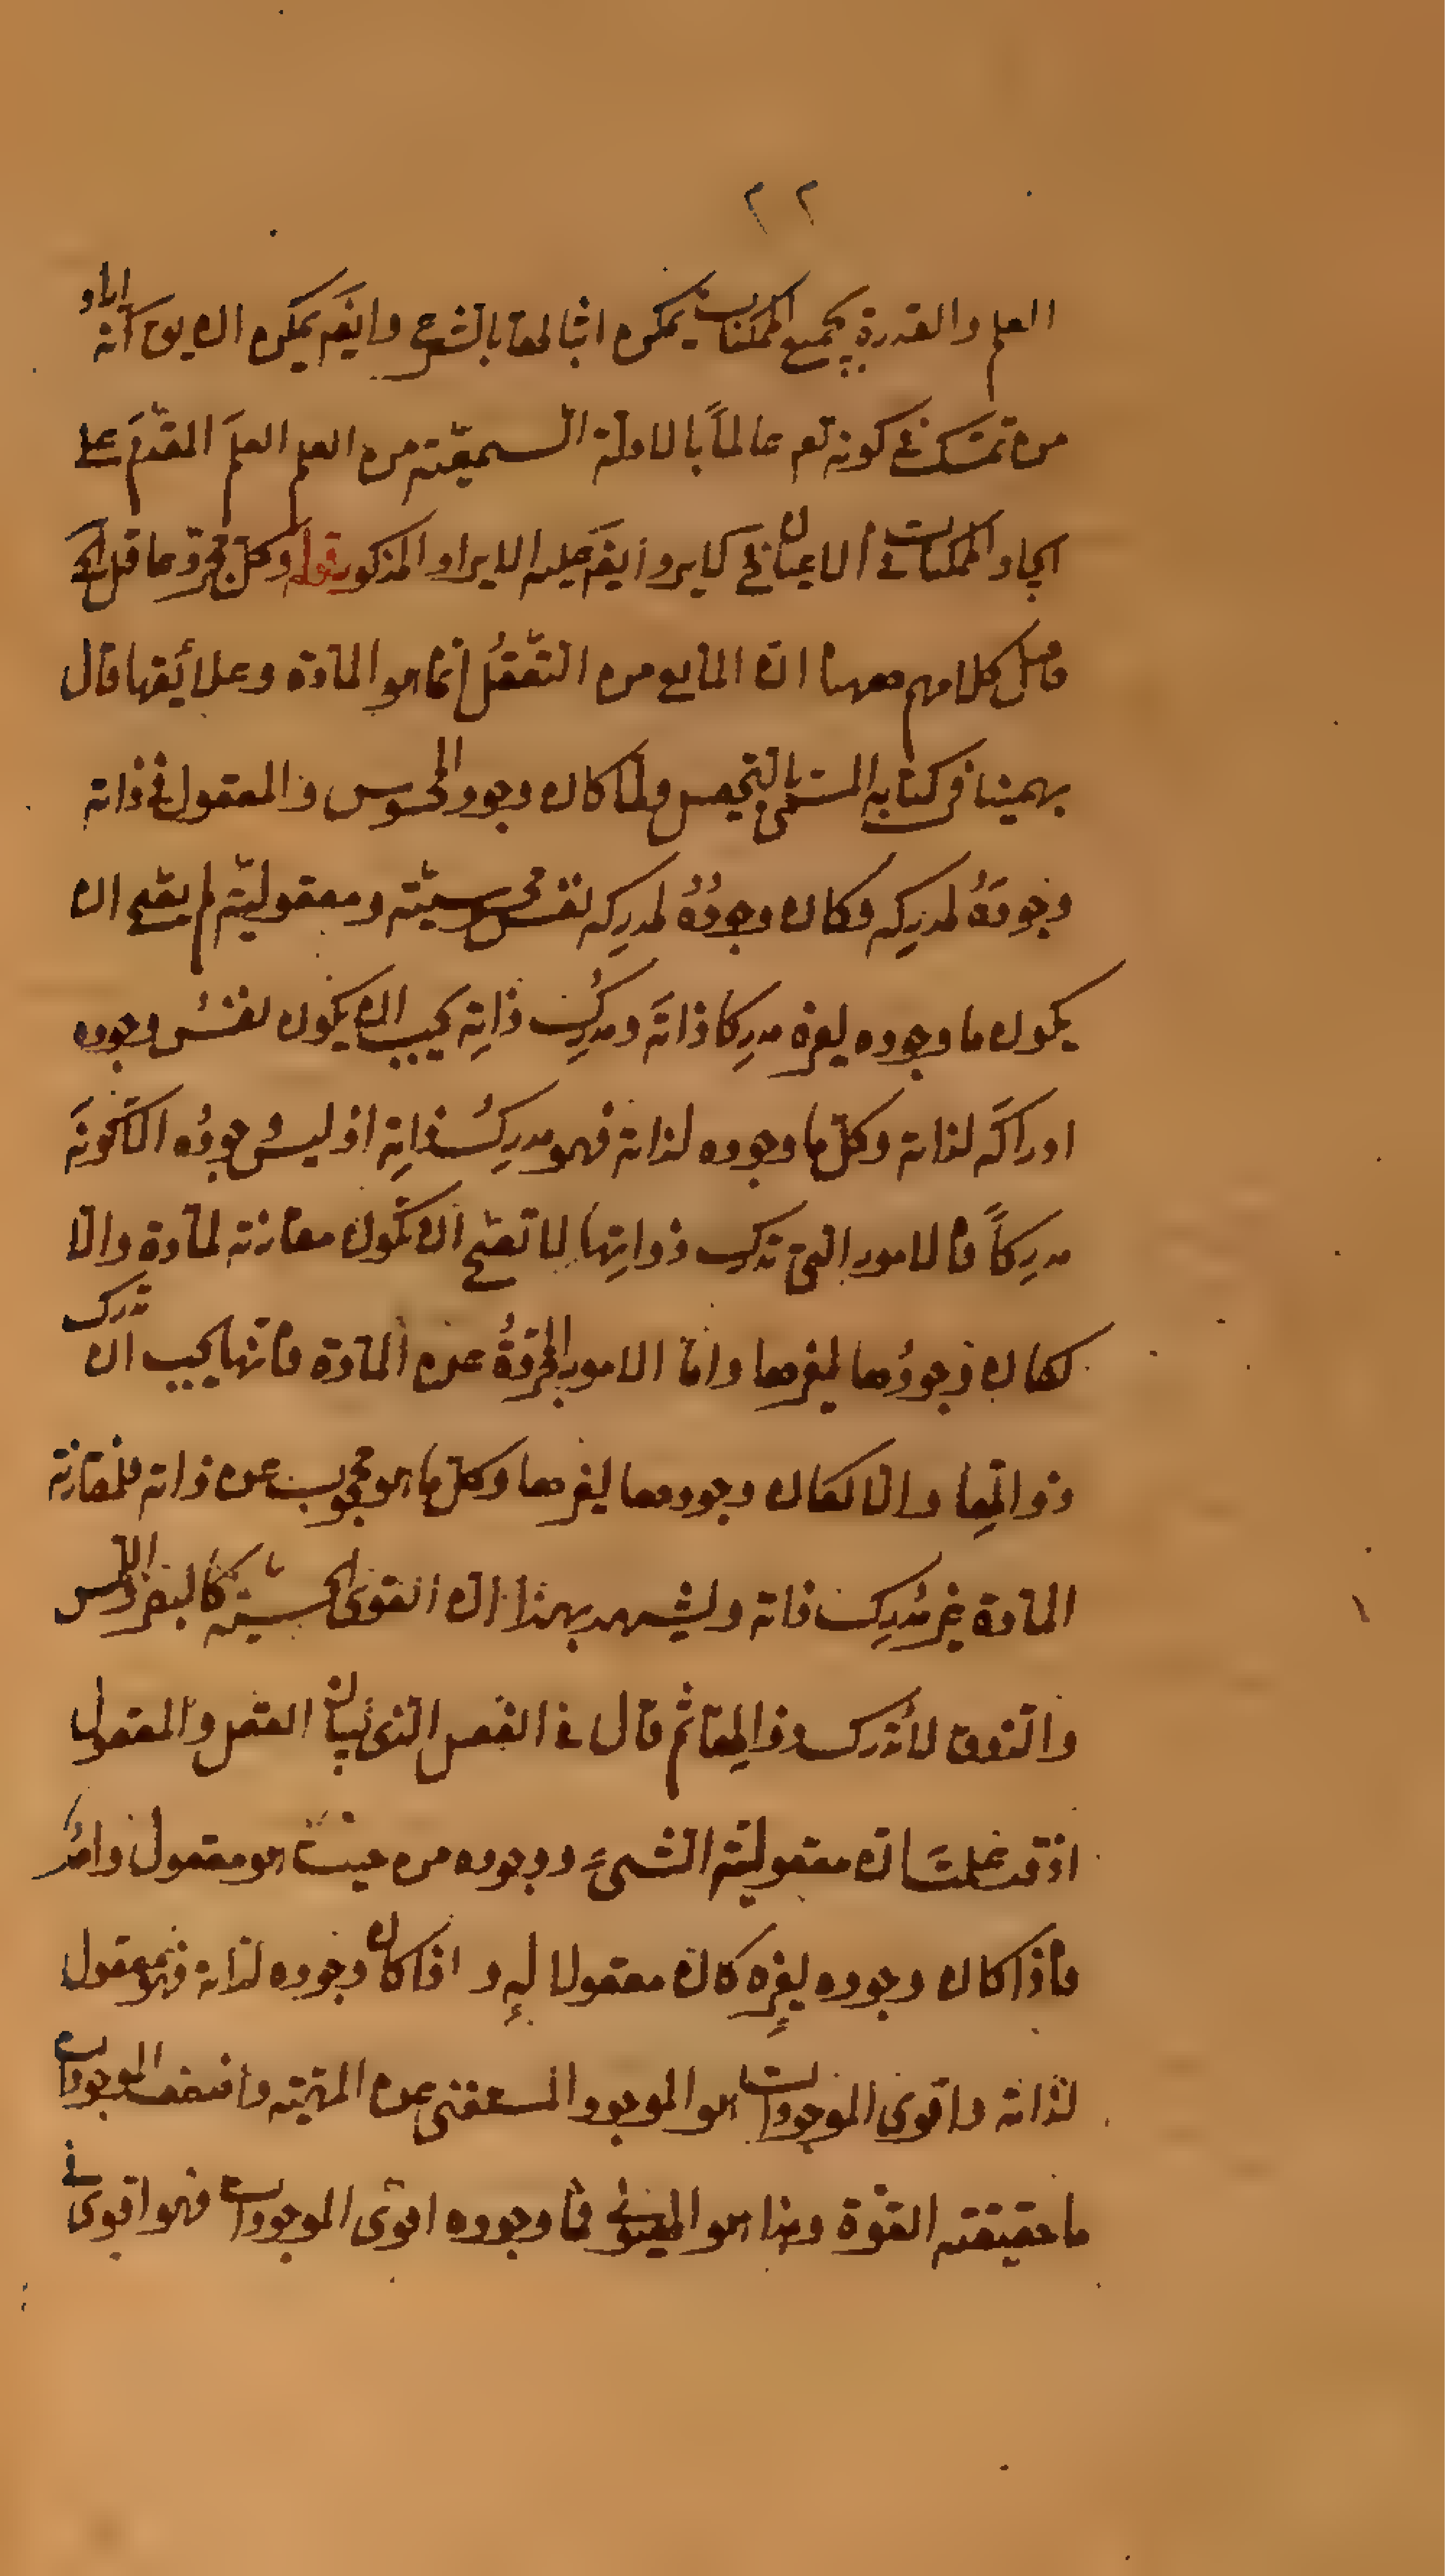 ٢٢
العلم والقدرة بجميع الممكنات يمكن اثباتها بالشرع وايضم يمكن ان يق انه اراد
من تمسك في كونه تعم عالماً بالادلة السمعيّة من العلم العلمَ المقدّم على
ايجاد الممكنات في الاعيان في كلا يرد ايضم عليه الايراد المذكور قوله وكل مجرّد عاقل
حاصل كلامهم ههنا ان المانع من التعقّل انما هو المادة وعلائقها قال
بهمنيار في كتابه المسمى بالتحصيل ولما كان وجود المحسوس والمعقول في ذاته
وجودَهُ لمدرِكه وكان وجودُهُ لمدرِكه نفس محسوسيّته ومعقوليّته لم يصّح ان
يكون ما وجوده لغيره مدرِكا ذاتَه ومدرِكُ ذاتِه يجب ان يكون نفسُ وجوده
ادراكَه لذاته وكلّ ما وجوده لذاته فهو مدرِكُ ذاتِه اذ ليس وجودُه الّا كونَه
مدرِكاً فالامور التي تدرك ذواتِها لا تصّح ان تكون مقارنة لمادة والّا
لكان وجودُها لغيرها وامّا الامور المجرّدةُ عن المادة فانّها يجب ان تدرك
ذواتِها والّا لكان وجودها لغيرها وكلّ ما هو محجوب عن ذاته فلمقارنة
المادة غيرُ مُدرِك ذاته وليشهد بهذا ان القوى الحسيّة كالبصر واللّمس
والذوق لا تُدرك ذواتِها ثم قال في الفصل الذي لبيان العقل والمعقول
اذ قد علمتَ ان معقوليّة الشيء ووجوده من حيث هو معقول واحدٌ
فاذا كان وجوده لغيرِه كان معقولا له واذا كان وجوده لذاته فهو معقول
لذاته واقوى الموجودات هو الموجود المستغنى عن المهيّة واضعف الموجودات
ما حقيقته القوّة وهذا هو الهيولى فما وجوده اقوى الموجودات فهو اقوى في